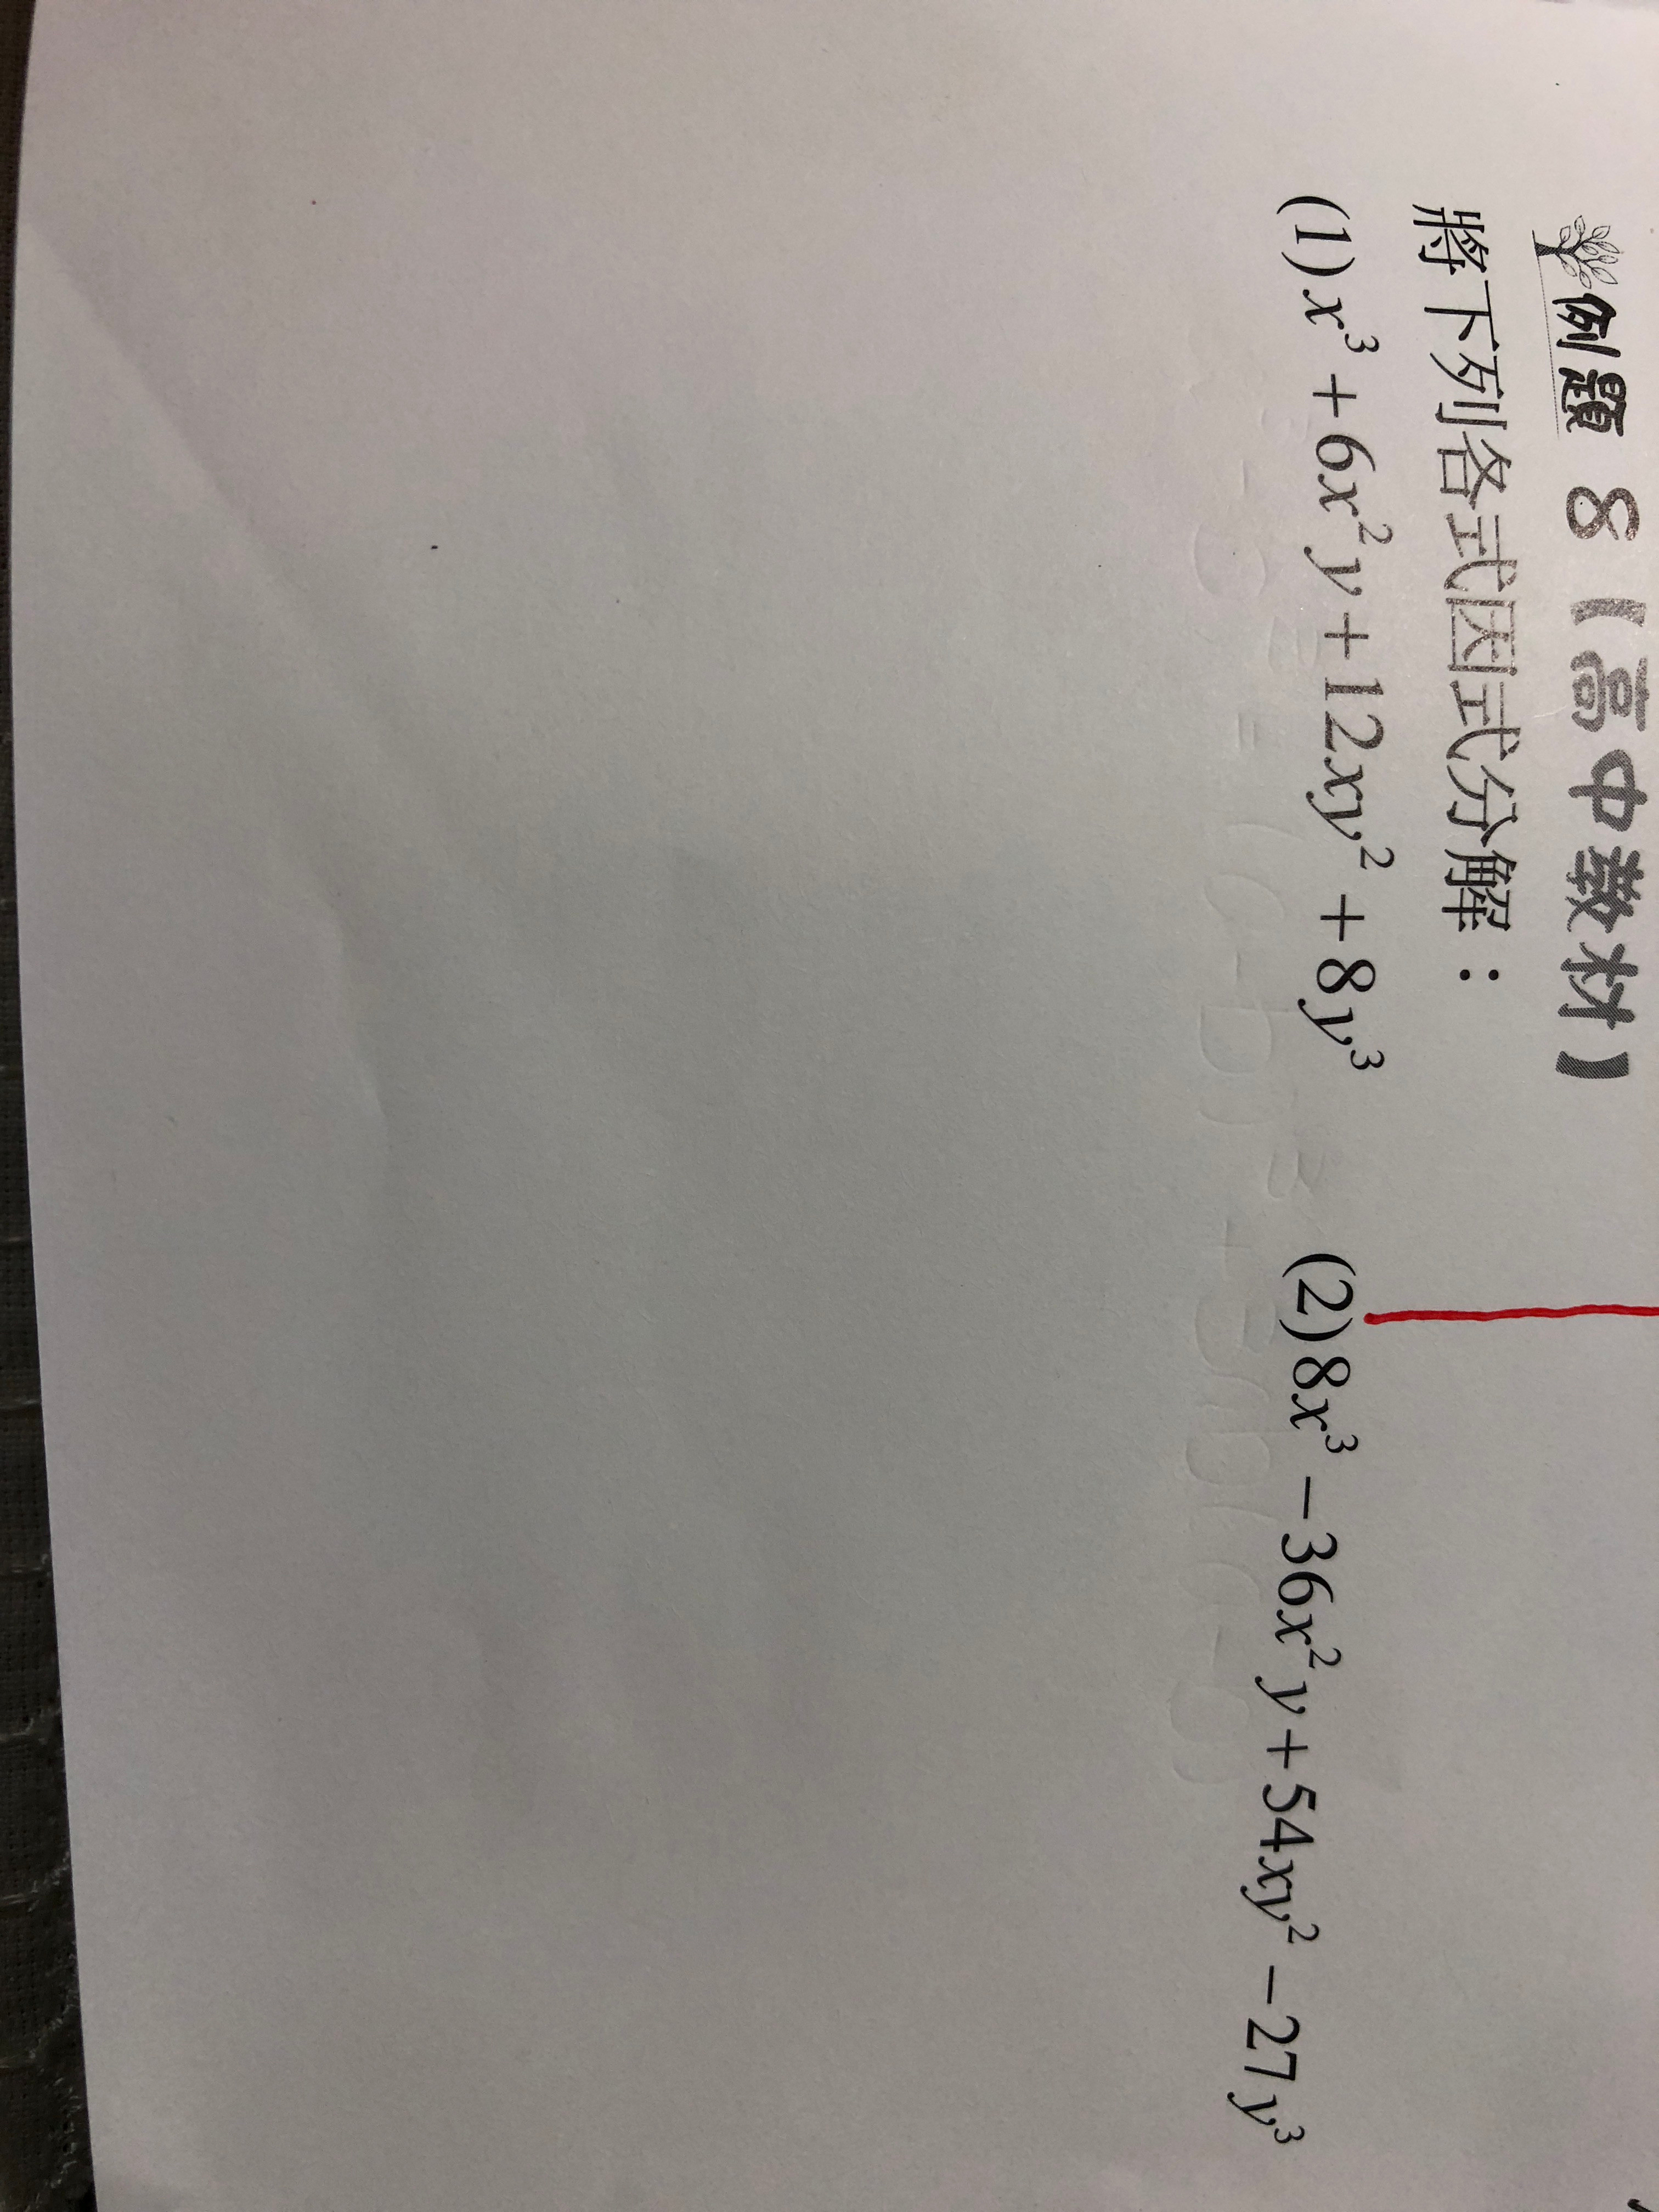 例題 8【高中教材】
將下列各式因式分解：
(1) x³ + 6x²y + 12xy² + 8y³ (2) 8x³ − 36x²y + 54xy² − 27y³